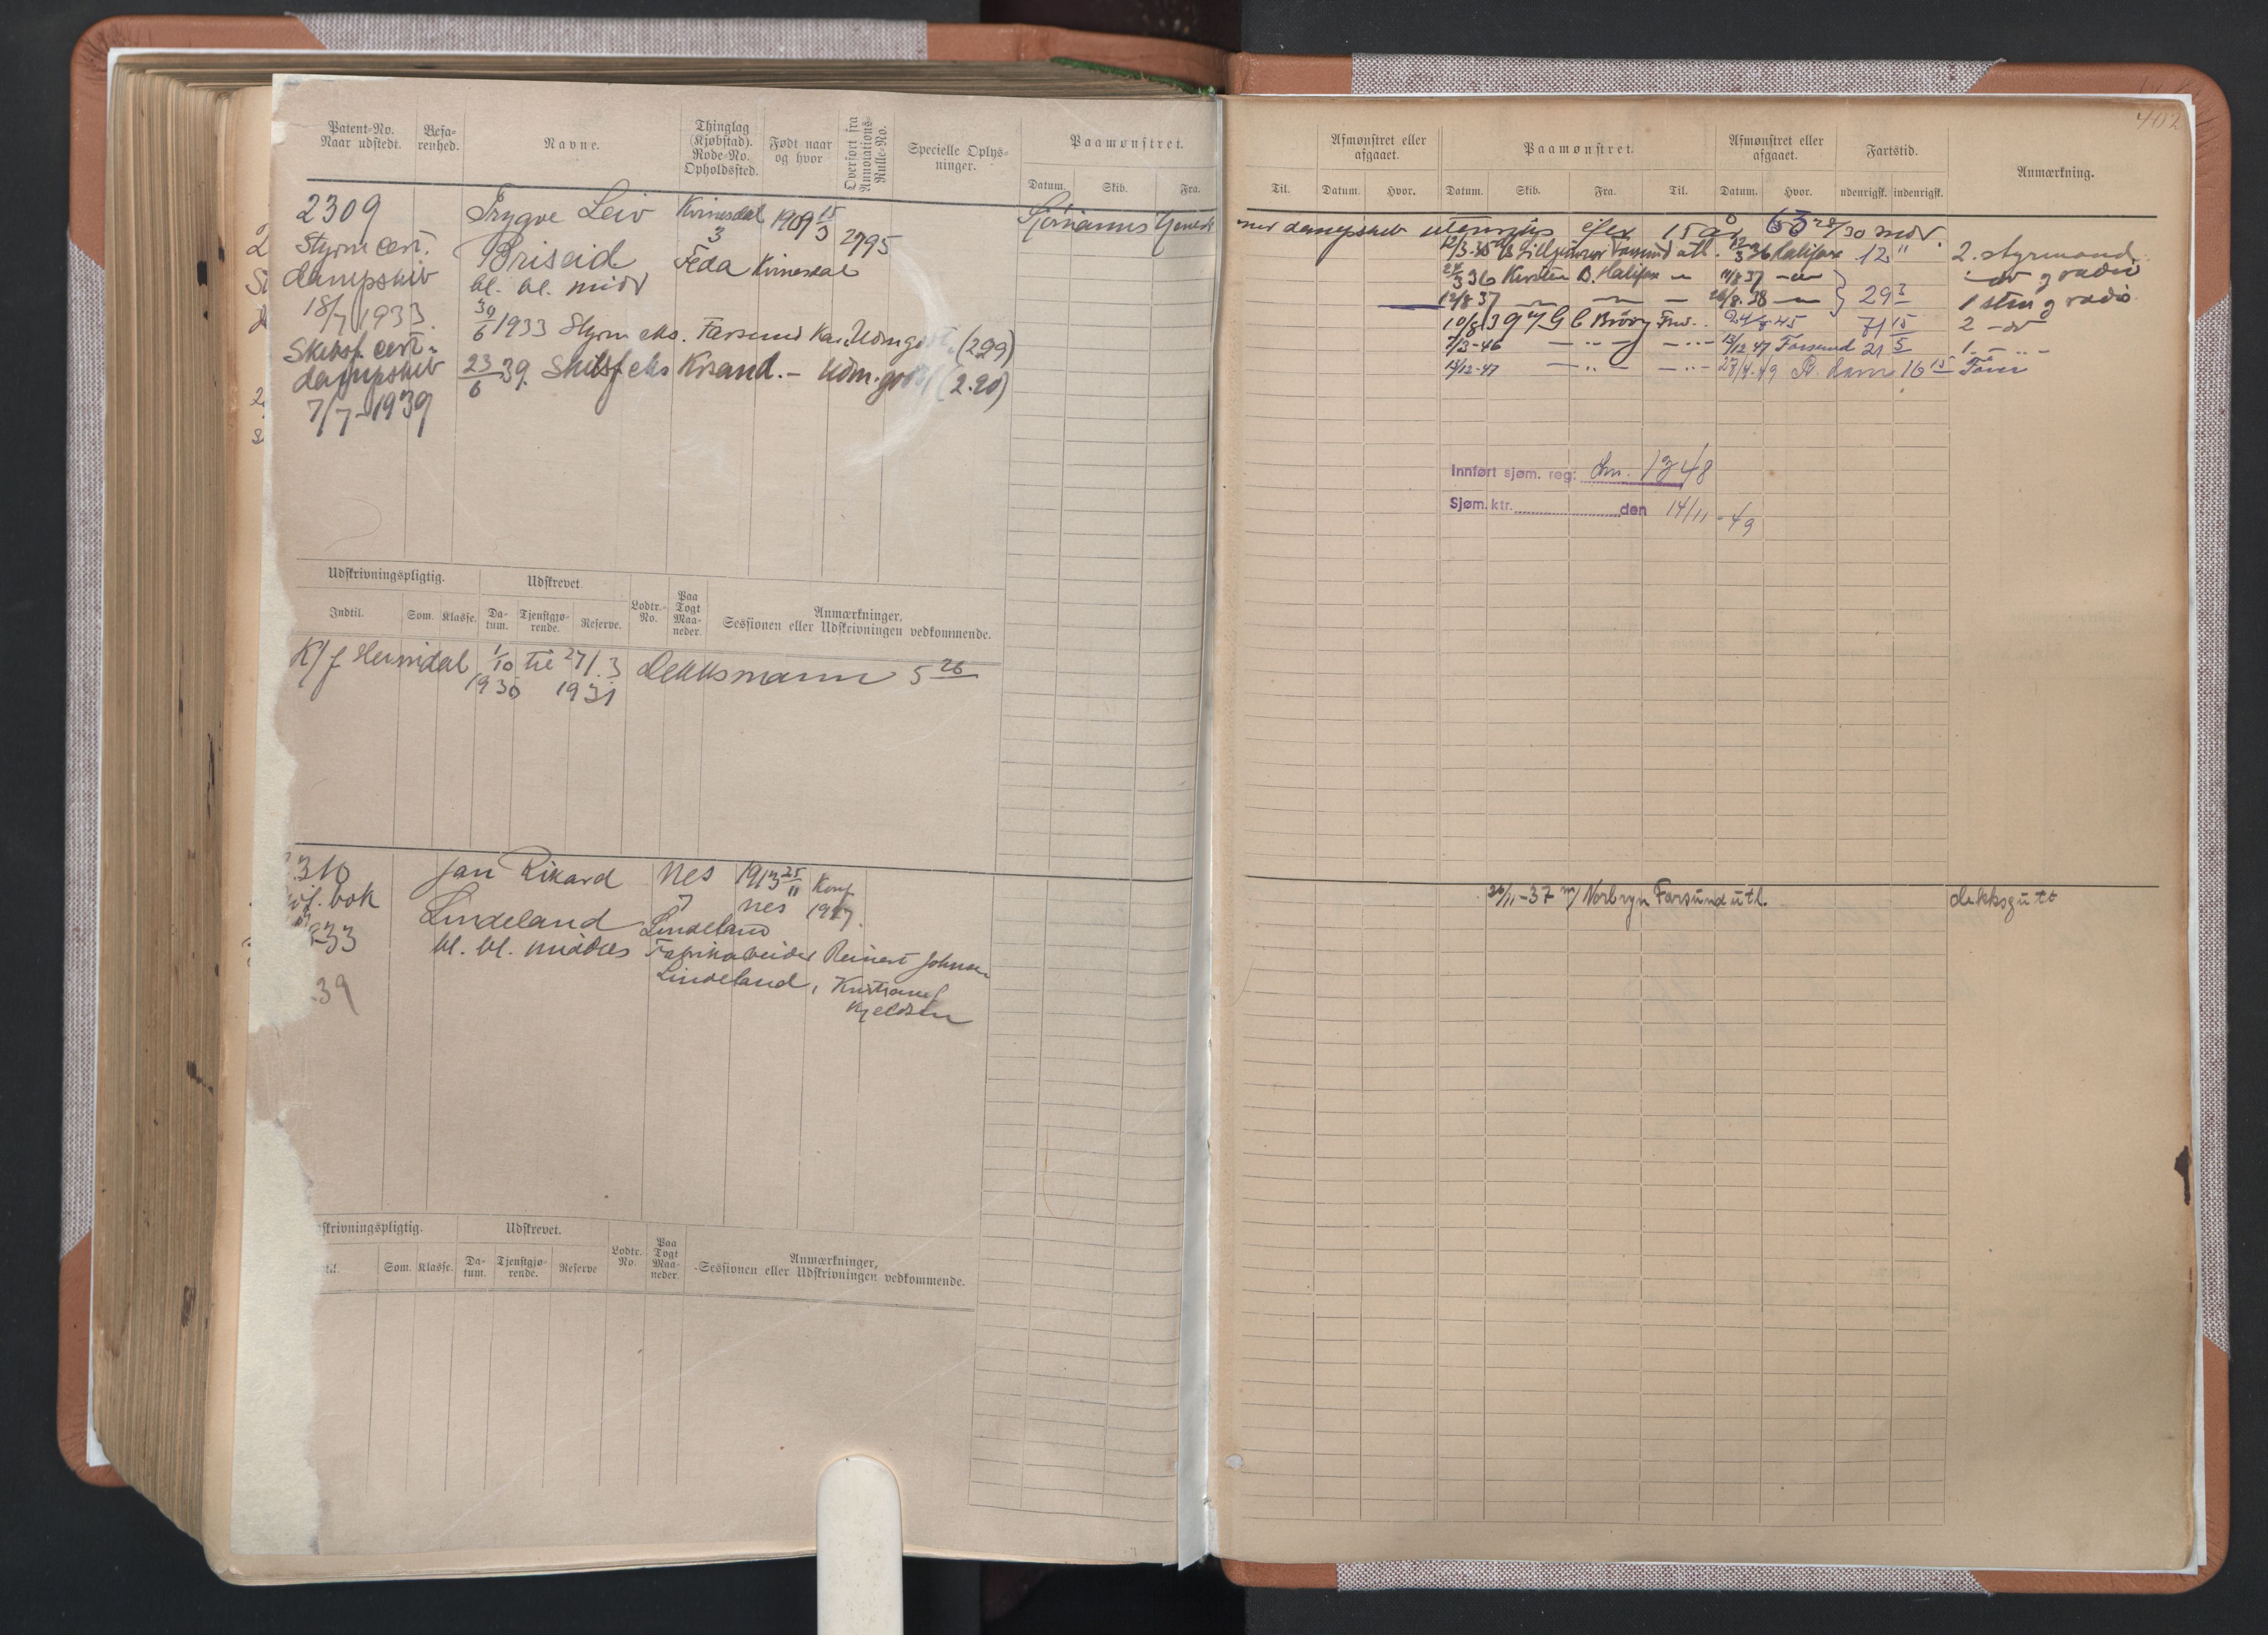 402
Patent-No. Naar udstedt.
Befarenhed.
Navne.
Thinglag (Kjøbstad). Rode-No. Opholdssted.
Født naar og hvor
Overført fra Annotations-Rulle-No.
Specielle Oplysninger.
Paamønstret.
Datum. Skib. Fra.
Til.
Afmønstret eller afgaaet.
Datum. Hvor.
Paamønstret.
Datum. Skib. Fra. Til.
Afmønstret eller afgaaet.
Datum. Hvor.
Fartstid.
ndenrigsk. indenrigsk.
Anmærkning.
2309 Trygve Leiv Kvinesdal 1909 15/3 2795
Styrm cert. Briseid 3 Feda Kvinesdal
dampskib bl. bl. midd
18/7 1933. 30/6 1933 Styrm eks. Farsund Kar. (299)
Skibsf. cert. dampskib 23/6 39. Skibsf eks Krsand. – (2.20)
7/7–1939
dampskib utenriks efter 15 år 63 28/30 mdr.
12/3-35 Farsund utl. 36 Halifax 12 " 2. styrmand
36 Kirsten B. Halifax 11/8 37 do g radio
12/8 37 26/8.38 29 3 1 stm g radio
10/8 39 M/S G C Brövig 45 71 15 2 – do
7/3-46 – .. – – .. – 13/12 47 Farsund 21 5 1. – .. –
14/12-47 – .. – – .. – 27/4-49 16 15
Innført sjøm. reg: 1348
Sjøm. ktr. den 14/11-49
Udskrivningspligtig.
Udskrevet.
Indtil. Som. Klasse. Datum. Tjenstgjørende. Reserve. Lodtr.-No. Paa Togt Maaneder.
Anmærkninger,
Sessionen eller Udskrivningen vedkommende.
1/10 1930 til 27/3 1931 Dekksmann 5 26
310 Jan Rikard Nes 1913 25/11 Konf
bok Lindeland 7 Lindeland Nes 1927.
233 bl. bl. middels Fabrikarbeider Reinert Johnsen
39 Lindeland, Kjeldsen
26/11-37 m/ Norbryn Farsund utl. dekksgutt
skrivningspligtig.
Udskrevet.
Som. Klasse. Datum. Tjenstgjørende. Reserve Lodtr. No. Paa Togt Maaneder
Anmærkninger,
Sessionen eller Udskrivningen vedkommende.